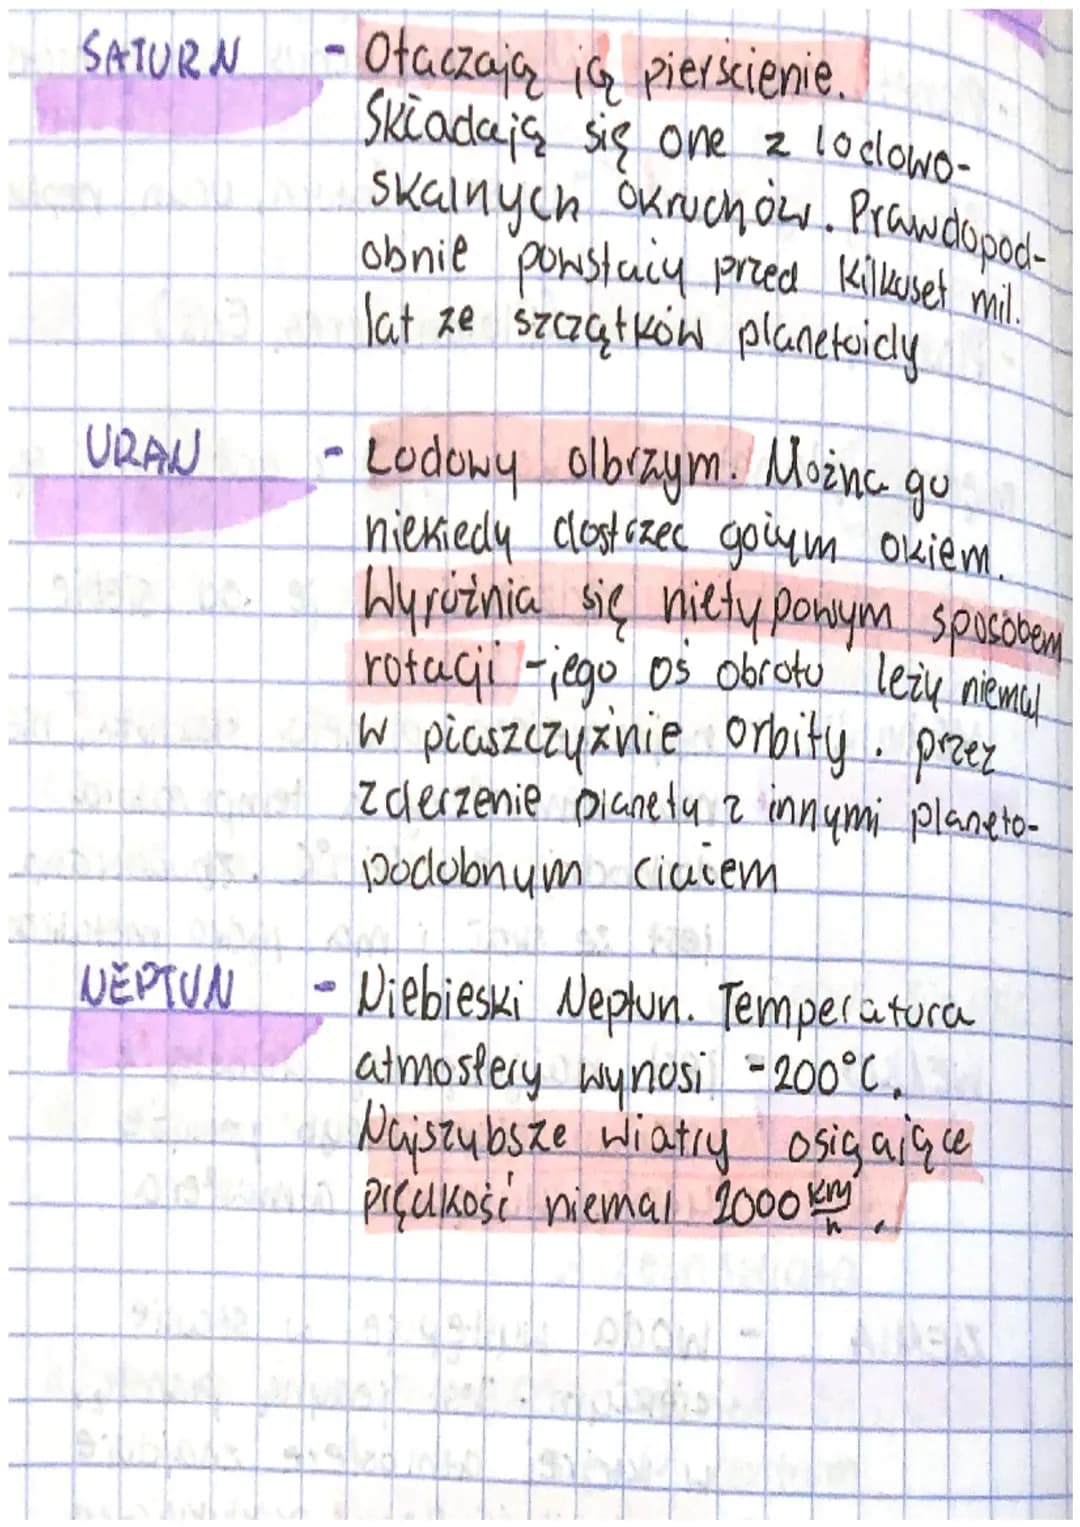 SATURN - Otaczają ją pierścienie.
Składają się one z lodowo-
skalnych okruchów. Prawdopod-
obnie powstały przed kilkuset mil.
lat ze szczątków planetoidy
URAN - Lodowy olbrzym. Można go
niekiedy dostrzec gołym okiem.
Wyróżnia się nietypowym sposobem
rotacji - jego oś obrotu leży niemal
w płaszczyźnie orbity. przez
zderzenie planety z innymi planeto-
podobnym ciałem
NEPTUN - Niebieski Neptun. Temperatura
atmosfery wynosi -200°C.
Najszybsze wiatry osigające
prędkość niemal 2000 km/h.